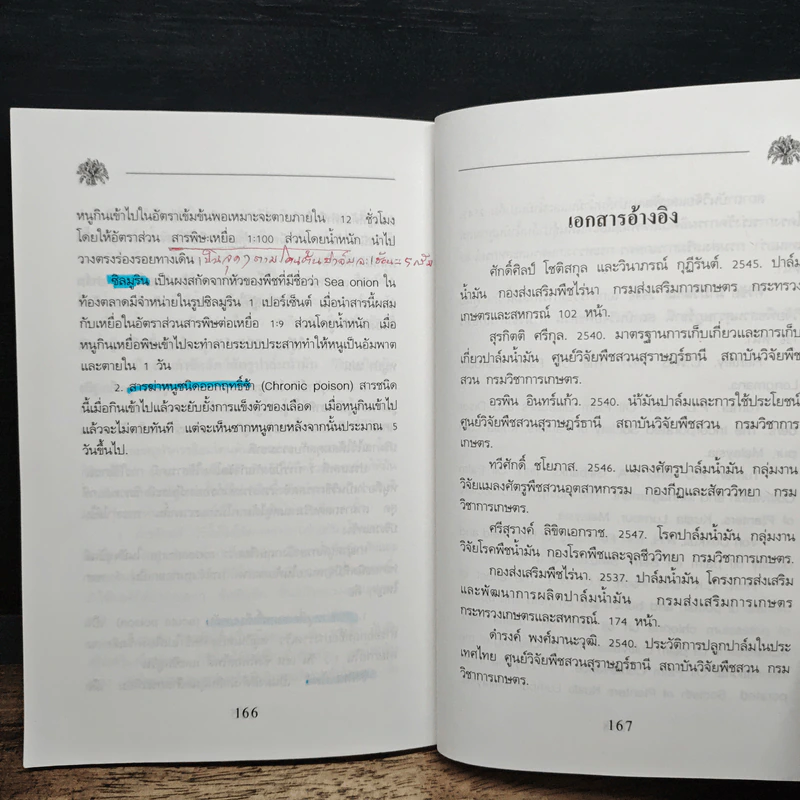 หนูกินเข้าไปในอัตราเข้มข้นพอเหมาะจะตายภายใน 12 ชั่วโมง
โดยให้อัตราส่วน สารพิษ:เหยื่อ 1:100 ส่วนโดยน้ำหนัก นำไป
วางตรงร่องรอยทางเดิน เป็นจุดๆ ตามโคนต้นปาล์ม 5
ซิลมูริน เป็นผงสกัดจากหัวของพืชที่มีชื่อว่า Sea onion ใน
ท้องตลาดมีจำหน่ายในรูปซิลมูริน 1 เปอร์เซ็นต์ เมื่อนำสารนี้ผสม
กับเหยื่อในอัตราส่วนสารพิษต่อเหยื่อ 1:9 ส่วนโดยน้ำหนัก เมื่อ
หนูกินเหยื่อพิษเข้าไปจะทำลายระบบประสาททำให้หนูเป็นอัมพาต
และตายใน 1 วัน
2. สารฆ่าหนูชนิดออกฤทธิ์ช้า (Chronic poison) สารชนิด
นี้เมื่อกินเข้าไปแล้วจะยับยั้งการแข็งตัวของเลือด เมื่อหนูกินเข้าไป
แล้วจะไม่ตายทันที แต่จะเห็นซากหนูตายหลังจากนั้นประมาณ 5
วันขึ้นไป.
166
เอกสารอ้างอิง
ศักดิ์ศิลป์ โชติสกุล และวินาภรณ์ กุฏีรันต์. 2545. ปาล์ม
น้ำมัน กองส่งเสริมพืชไร่นา กรมส่งเสริมการเกษตร กระทรวง
เกษตรและสหกรณ์ 102 หน้า.
สุรกิตติ ศรีกุล. 2540. มาตรฐานการเก็บเกี่ยวและการเก็บ
เกี่ยวปาล์มน้ำมัน ศูนย์วิจัยพืชสวนสุราษฎร์ธานี สถาบันวิจัยพืช
สวน กรมวิชาการเกษตร.
อรพิน อินทร์แก้ว. 2540. น้ำมันปาล์มและการใช้ประโยชน์
ศูนย์วิจัยพืชสวนสุราษฎร์ธานี สถาบันวิจัยพืชสวน กรมวิชาการ
เกษตร.
ทวีศักดิ์ ชโยภาส. 2546. แมลงศัตรูปาล์มน้ำมัน กลุ่มงาน
วิจัยแมลงศัตรูพืชสวนอุตสาหกรรม กองกีฏและสัตววิทยา กรม
วิชาการเกษตร.
ศรีสุรางค์ ลิขิตเอกราช. 2547. โรคปาล์มน้ำมัน กลุ่มงาน
วิจัยโรคพืชน้ำมัน กองโรคพืชและจุลชีววิทยา กรมวิชาการเกษตร.
กองส่งเสริมพืชไร่นา. 2537. ปาล์มน้ำมัน โครงการส่งเสริม
และพัฒนาการผลิตปาล์มน้ำมัน กรมส่งเสริมการเกษตร
กระทรวงเกษตรและสหกรณ์. 174 หน้า.
ดำรงค์ พงศ์มานะวุฒิ. 2540. ประวัติการปลูกปาล์มในประ
เทศไทย ศูนย์วิจัยพืชสวนสุราษฎร์ธานี สถาบันวิจัยพืชสวน กรม
วิชาการเกษตร.
167